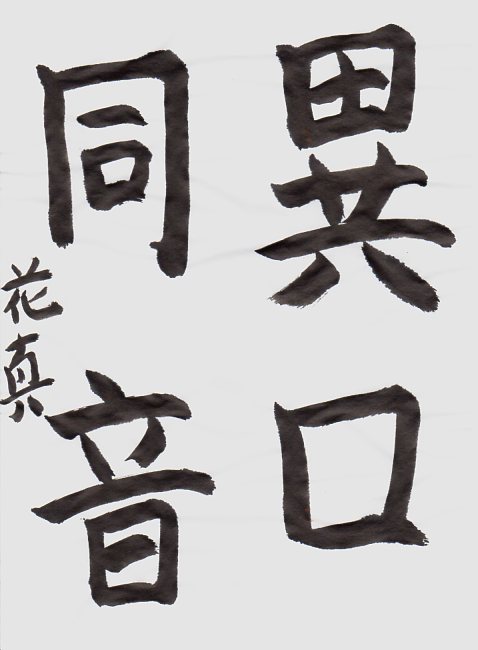 異口
同音
花真